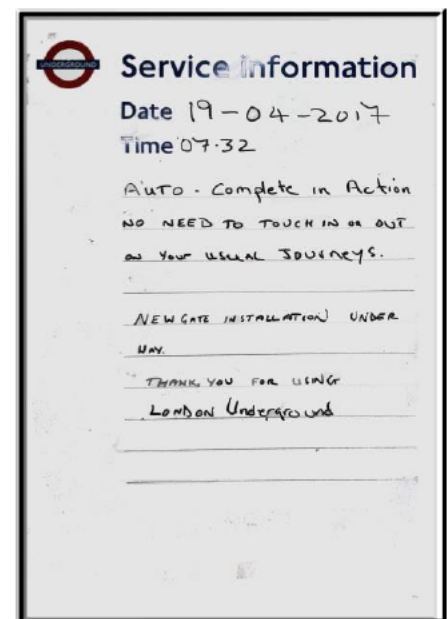 UNDERGROUND
Service information
Date 19-04-2017
Time 07.32
AUTO. Complete in Action
NO NEED TO TOUCH IN OR OUT
on Your USUAL JOURNEYS.
NEW GATE INSTALLATION UNDER
WAY.
THANK YOU FOR USING
LONDON Underground